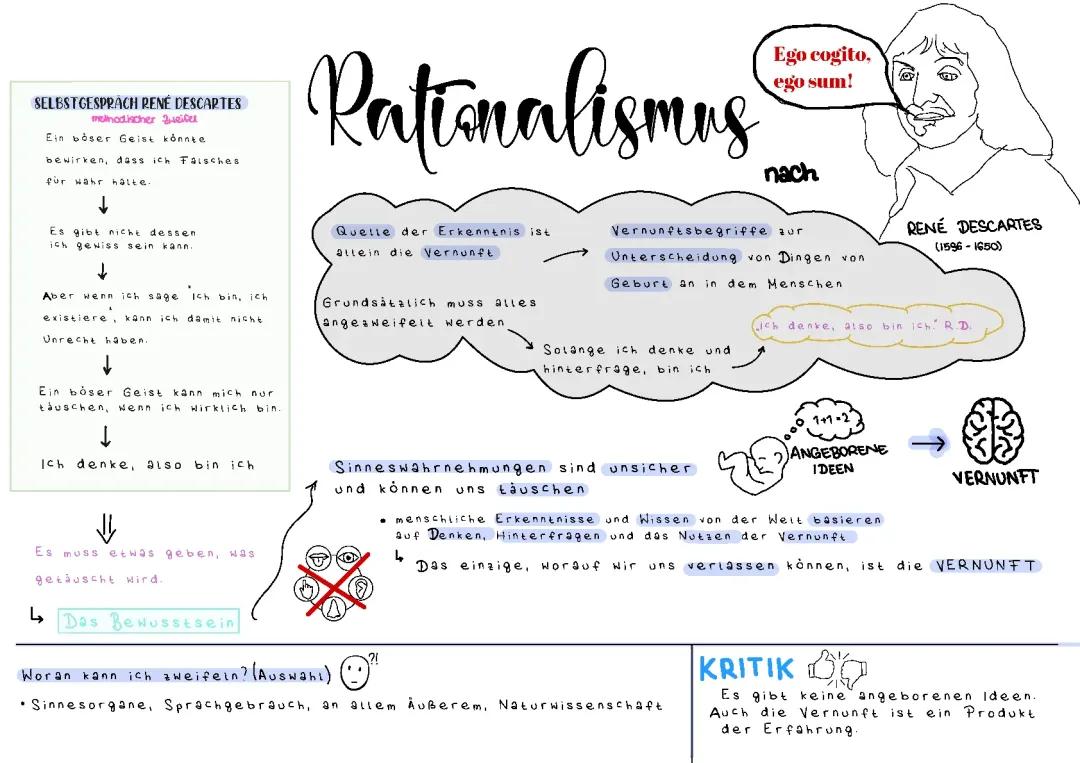 Rationalismus
nach
Ego cogito,
ego sum!
RENÉ DESCARTES
(1596 - 1650)
SELBSTGESPRÄCH RENÉ DESCARTES
methodischer Zweifel
Ein böser Geist könnte
bewirken, dass ich Falsches
für wahr halte.
↓
Es gibt nicht dessen
ich gewiss sein kann.
↓
Aber wenn ich sage "Ich bin, ich
existiere", kann ich damit nicht
Unrecht haben.
↓
Ein böser Geist kann mich nur
täuschen, wenn ich wirklich bin.
↓
Ich denke, also bin ich
⇓
Es muss etwas geben, was
getäuscht wird.
↳ Das Bewusstsein
Quelle der Erkenntnis ist
allein die Vernunft
→
Vernunftsbegriffe zur
Unterscheidung von Dingen von
Geburt an in dem Menschen
Grundsätzlich muss alles
angezweifelt werden
Solange ich denke und
hinterfrage, bin ich
„Ich denke, also bin ich." R.D.
1+1=2
ANGEBORENE
IDEEN
→
VERNUNFT
Sinneswahrnehmungen sind unsicher
und können uns täuschen
• menschliche Erkenntnisse und Wissen von der Welt basieren
auf Denken, Hinterfragen und das Nutzen der Vernunft
↳ Das einzige, worauf wir uns verlassen können, ist die VERNUNFT
Woran kann ich zweifeln? (Auswahl) ?!
• Sinnesorgane, Sprachgebrauch, an allem Äußerem, Naturwissenschaft
KRITIK
Es gibt keine angeborenen Ideen.
Auch die Vernunft ist ein Produkt
der Erfahrung.